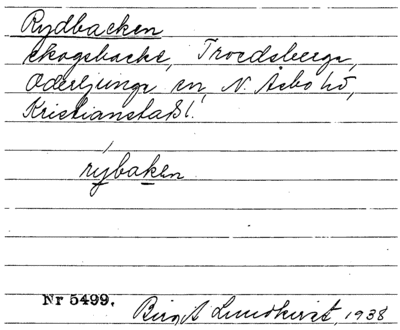 Rydbacken
skogsbacke, Troedsberga,
Oderljunga sn, N. Åsbo hd,
Kristianstads l.
rybaken
Nr 5499.
Birgit Lundkvist, 1938